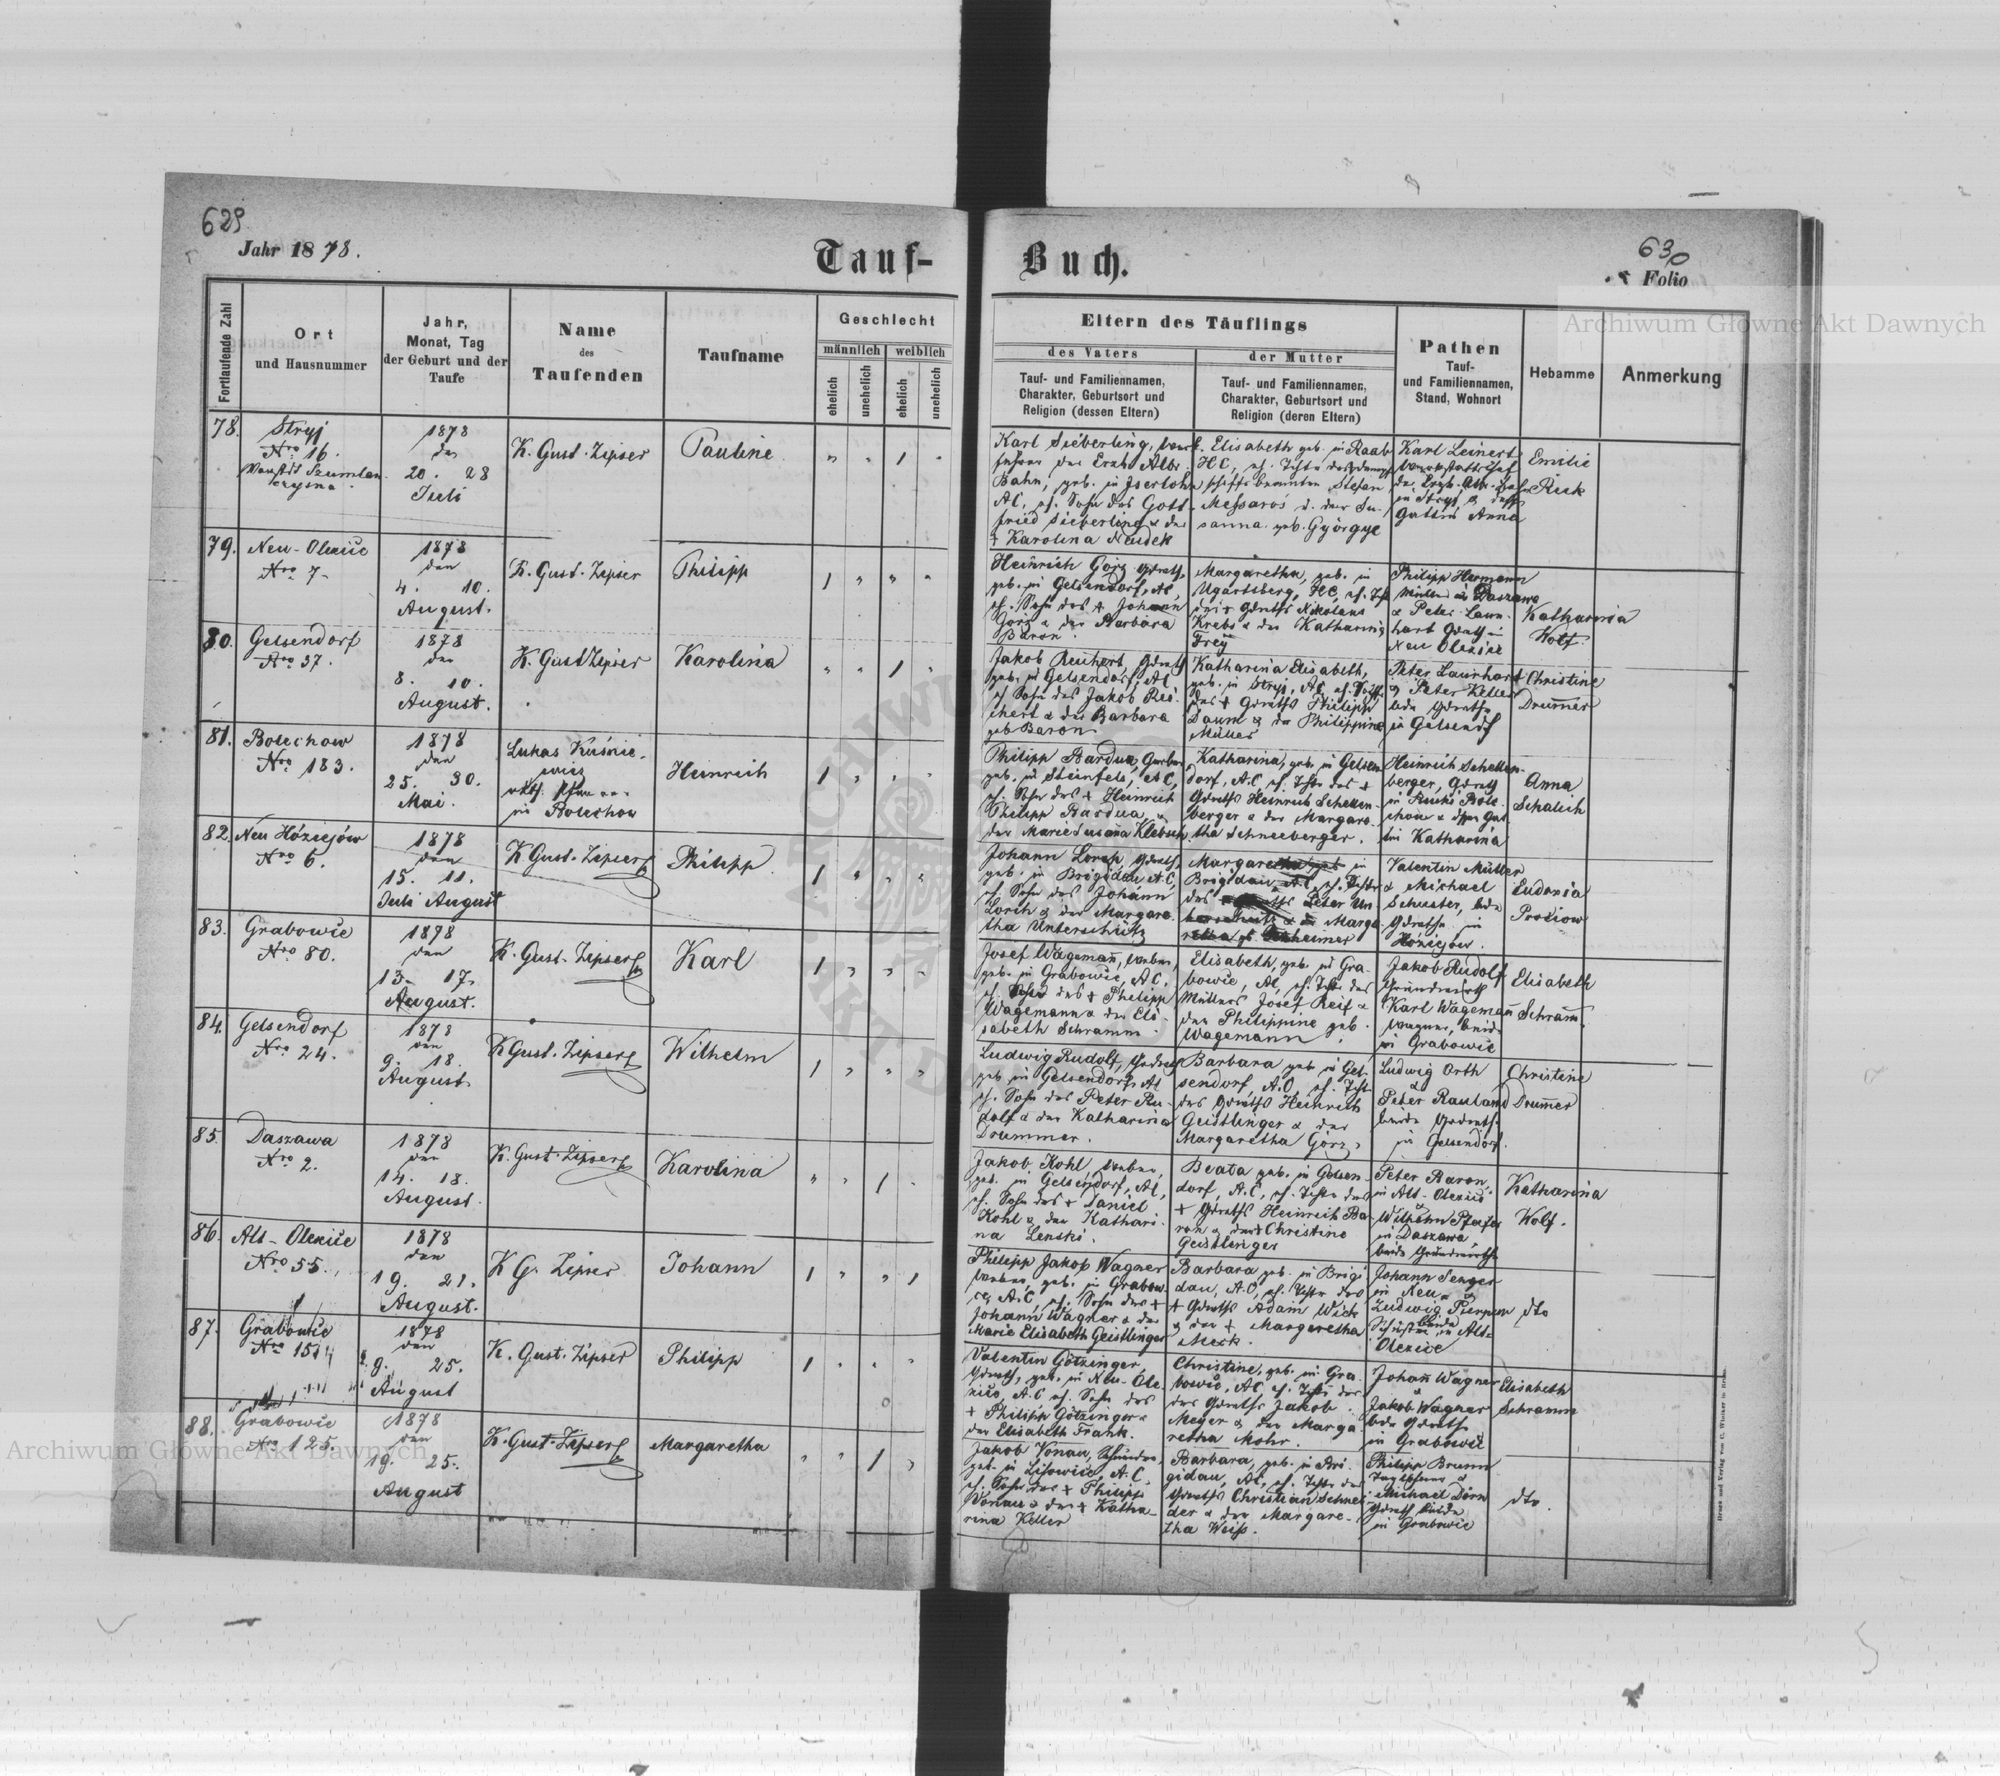 629
Jahr 1878.
Tauf-
Buch.
630
Folio
Archiwum Główne Akt Dawnych
Fortlaufende Zahl
Ort
und Hausnummer
Jahr,
Monat, Tag
der Geburt und der
Taufe
Name
des
Taufenden
Taufname
Geschlecht
männlich
weiblich
ehelich
unehelich
ehelich
unehelich
Eltern des Täuflings
des Vaters
der Mutter
Tauf- und Familiennamen,
Charakter, Geburtsort und
Religion (dessen Eltern)
Tauf- und Familiennamen,
Charakter, Geburtsort und
Religion (deren Eltern)
Pathen
Tauf-
und Familiennamen,
Stand, Wohnort
Hebamme
Anmerkung
78.
Stryj
Nro 16.
1878
den
20. 28
Juli
K. Gust. Zipser
Pauline
" " 1 "
Karl Sieberling,
führer der Erzh. Albr.
Bahn, geb. in Iserlohn
AC, eh. Sohn des Gott-
fried Sieberling & der
+ Karolina Neudek
Elisabeth geb. in Raab
HC, eh. Tchtr des
Stefan
Messaros u. der Su-
sanna geb. György
Karl Leinert
in Stryj & dess
Gattin Anna
Emilie
Rick
79.
Neu-Olexice
Nro 7.
1878
den
4. 10.
August.
K. Gust. Zipser
Philipp
1 " " "
Heinrich Görz Gdrth,
geb. in Gelsendorf, AC,
eh. Sohn des + Johann
Görz & der Barbara
Baron.
Margaretha, geb. in
Ugartsberg, HC, eh. Tch
des Gdrths Nikolaus
Krebs & der Katharina
Frey
Philipp Hermann
Müller in Daszawa
& Peter Laun-
hart Gdrth in
Neu Olexice
Katharina
Wolf.
80.
Gelsendorf
Nro 37.
1878
den
8. 10.
August.
K. Gust Zipser
Karolina
" " 1 "
Jakob Reichert, Gdrth
geb. in Gelsendorf, AC
eh Sohn des Jakob Rei-
chert & der Barbara
geb Baron
Katharina Elisabeth,
geb. in Stryj, AC, eh.
des + Gdrths Philipp
Daum & der Philippine
Müller
Peter Launhart
& Peter Keller
beide Gdrthe
in Gelsendf
Christine
Drummer
81.
Bolechow
Nro 183.
1878
den
25. 30.
Mai.
Lukas Kuśnie-
wicz
in Bolechow
Heinrich
1 " " "
Philipp Bardua, Gerber
geb. in Steinfels, AC,
eh. Sohn des + Heinrich
Philipp Bardua &
der Marie Susana Klebsch
Katharina, geb. in Gelsen
dorf, A.C, eh. Tchtr des +
Gdrths Heinrich Schellen-
berger & der Margare-
tha Schneeberger.
Heinrich Schellen-
berger, Gdrth
in Ruski Bole-
chow & dssen Gat
tin Katharina
Anna
Schalich
82.
Neu Hóziejów
Nro 6.
1878
den
15. 11.
Juli August
K Gust. Zipser
Philipp
1 " " "
Johann Lorch, Gdrth,
geb. in Brigidau, A.C,
eh. Sohn des Johann
Lorch & der Margare-
tha Unterschütz
Margaretha geb in
Brigidau, A.C, eh. Tchtr
des Peter Un-
& der Marga
retha
Valentin Müller
& Michael
Schuster, beide
Gdrthe in
Hóziejow.
Eudoxia
Prociow
83.
Grabowce
Nro 80.
1878
den
13. 17.
August.
K. Gust. Zipser
Karl
1 " " "
Josef Wagemann, Weber,
geb. in Grabowce, A.C,
eh. Sohn des + Philipp
Wagemann & der Eli-
sabeth Schramm.
Elisabeth, geb. in Gra-
bowce, AC, eh. Tchtr des
Müllers Josef Reif &
der Philippine geb.
Wagemann.
Jakob Rudolf,
Grundwirth
Karl Wagemann
Wagner, beide
in Grabowce
Elisabeth
Schramm.
84.
Gelsendorf
Nro 24.
1878
den
9. 18.
August.
K Gust. Zipser
Wilhelm
1 " " "
Ludwig Rudolf, Gdrth
geb in Gelsendorf, AC
eh. Sohn des Peter Ru-
dolf & der Katharina
Drummer.
Barbara geb in Gel-
sendorf, A.C, eh. Tcht.
des Gdrths Heinrich
Geistlinger & der
Margaretha Görz.
Ludwig Orth
&
Peter Rauland
beide Gdrth.
in Gelsendorf.
Christine
Drummer
85.
Daszawa
Nro 2.
1878
den
14. 18.
August.
K. Gust. Zipser
Karolina
" " 1 "
Jakob Kohl, Weber,
geb. in Gelsendorf, AC,
eh. Sohn des + Daniel
Kohl & der Kathari-
na Lenski.
Beata geb. in Gelsen-
dorf, A.C, eh. Tchtr des
+ Gdrths Heinrich Ba-
ron & der + Christine
Geistlinger
Peter Baron,
in Alt-Olexice
&
Wilhelm Pfeifer
in Daszawa
beide Grundwirthe
Katharina
Wolf.
86.
Alt-Olexice
Nro 55.
1878
den
19. 21.
August.
K G. Zipser
Johann
1 " " 1
Philipp Jakob Wagner
Weber, geb. in Grabow-
ce, A.C, eh. Sohn des +
Johann Wagner & der
Marie Elisabeth Geistlinger
Barbara geb. in Brigi
dau, A.C, eh. Tchtr des
+ Gdrths Adam Wick
& der + Margaretha
Merk.
Johann Senger
in Neu- &
Ludwig
Schuster, beide in Alt-
Olexice
dto
87.
Grabowce
Nro 151
1878
den
9. 25.
August
K. Gust. Zipser
Philipp
1 " " "
Valentin Götzinger,
Gdrth, geb. in Neu-Ole-
xice, A.C eh. Sohn des
+ Philipp Götzinger &
der Elisabeth Frank.
Christine, geb. in Gra-
bowce, AC, eh. Tchtr des
des Gdrths Jakob
Meyer & der Marga
retha Mohr.
Johann Wagner
&
Jakob Wagner
beide Gdrth
in Grabowce
Elisabeth
Schramm
88.
Grabowce
Nro 125.
1878
den
19. 25.
August
K. Gust. Zipser
Margaretha
" " 1 "
Jakob Vonau,
geb. in Lisowice, A.C.
eh. Sohn des + Philipp
Vonau & der + Katha-
rina Keller
Barbara, geb. in Bri-
gidau, AC, eh. Tchtr des
Gdrths Christian Schnei-
der & der Margare-
tha Weiss.
Philipp Brunn
Taglöhner &
Michael Dörn
Gdrth beide
in Grabowce
dto.
Archiwum Główne Akt Dawnych